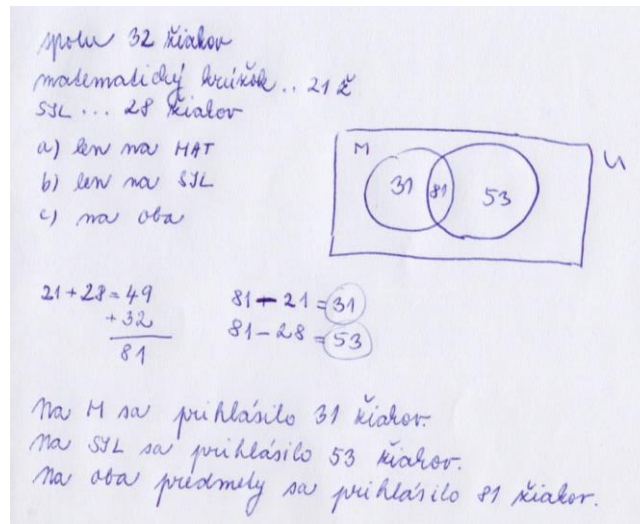 spolu 32 žiakov
matematický krúžok .. 21 ž
SJL ... 28 žiakov
a) len na MAT
b) len na SJL
c) na oba
M
U
31
81
53
21 + 28 = 49
+ 32
81
81 - 21 = 31
81 - 28 = 53
Na M sa prihlásilo 31 žiakov.
Na SJL sa prihlásilo 53 žiakov.
Na oba predmety sa prihlásilo 81 žiakov.